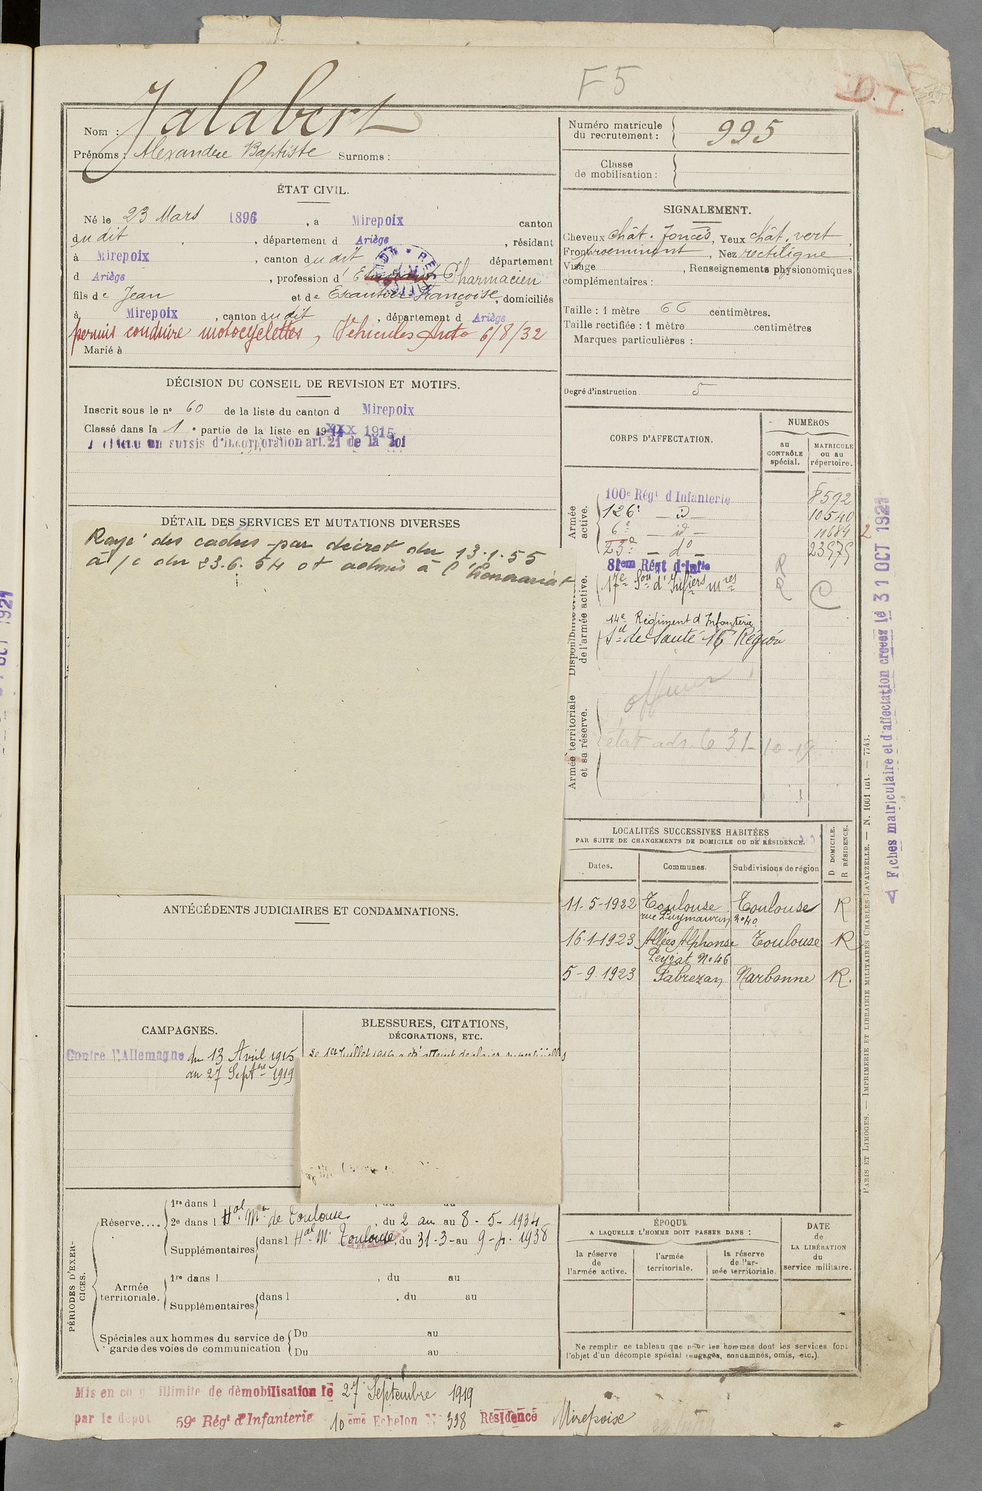 F5
D.I.
Nom : Jalabert
Prénoms : Alexandre Baptiste Surnoms :
ÉTAT CIVIL.
Né le 23 Mars 1896, à Mirepoix canton
dudit, département d Ariège, résidant
à Mirepoix, canton dudit département
d Ariège, profession d Pharmacien
fils de Jean et de Françoise, domiciliés
à Mirepoix, canton dudit, département d Ariège
permis conduire motocyclettes, Véhicules Auto 6/8/32
Marié à
DÉCISION DU CONSEIL DE REVISION ET MOTIFS.
Inscrit sous le no 60 de la liste du canton d Mirepoix
Classé dans la 1e partie de la liste en 1915
un sursis d'incorporation art. 21 de la loi
DÉTAIL DES SERVICES ET MUTATIONS DIVERSES
Rayé des cadres par décret du 13.1.55
à /c du 23.6.54 et admis à l'honorariat
ANTÉCÉDENTS JUDICIAIRES ET CONDAMNATIONS.
CAMPAGNES.
Contre l'Allemagne du 13 Avril 1915
au 27 Septbre 1919
BLESSURES, CITATIONS,
DÉCORATIONS, ETC.
PÉRIODES D'EXERCICES.
Réserve....
1re dans l , du au
2e dans l Hal Mre de Toulouse, du 2 au 8-5-1934
Supplémentaires dans l Hal Mre Toulouse, du 31-3- au 9-4-1938
Armée territoriale.
1re dans l , du au
Supplémentaires dans l , du au
Spéciales aux hommes du service de garde des voies de communication
Du au
Du au
Mis en congé illimité de démobilisation le 27 Septembre 1919
par le dépôt 59e Régt d'Infanterie 10ème Echelon No 338 Résidence Mirepoix
Numéro matricule
du recrutement : 995
Classe
de mobilisation :
SIGNALEMENT.
Cheveux chât. foncés, Yeux chât. vert
Front proéminent, Nez rectiligne,
Visage , Renseignements physionomiques
complémentaires :
Taille : 1 mètre 66 centimètres.
Taille rectifiée : 1 mètre centimètres
Marques particulières :
Degré d'instruction 5
CORPS D'AFFECTATION.
NUMÉROS
au CONTRÔLE spécial.
MATRICULE ou au répertoire.
Armée active.
100e Régt d'Infanterie 8592
126e — d — 10540
6e — d — 11684
23e — do — 23979
81em Régt d'Infie
Disponibilité
de l'armée active.
17e Son d'Infiers mres
14e Régiment d'Infanterie
Son de santé 16e Région
officier
Armée territoriale
et sa réserve.
LOCALITÉS SUCCESSIVES HABITÉES
PAR SUITE DE CHANGEMENTS DE DOMICILE OU DE RÉSIDENCE.
D DOMICILE.
R RÉSIDENCE.
Dates. Communes. Subdivisions de région
11-5-1922 Toulouse Toulouse R
rue Puymaurin no 40
16-1-1923 Allées Alphonse Toulouse R
Peyrat No 46
5-9-1923 Fabrezan Narbonne R.
ÉPOQUE
A LAQUELLE L'HOMME DOIT PASSER DANS :
la réserve de l'armée active.
l'armée territoriale.
la réserve de l'armée territoriale.
DATE
de
LA LIBÉRATION
du
service militaire.
Ne remplir ce tableau que pour les hommes dont les services font
l'objet d'un décompte spécial (engagés, condamnés, omis, etc.).
PARIS ET LIMOGES. — IMPRIMERIE ET LIBRAIRIE MILITAIRES CHARLES-LAVAUZELLE. — N. 1001 int. — 7743.
Fiches matriculaire et d'affectation créées le 31 OCT 1921